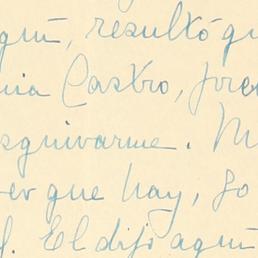 aquí, resultó qu
nia Castro, jove
esquivarme. M
ver que hay, so
l. El dijo aquí